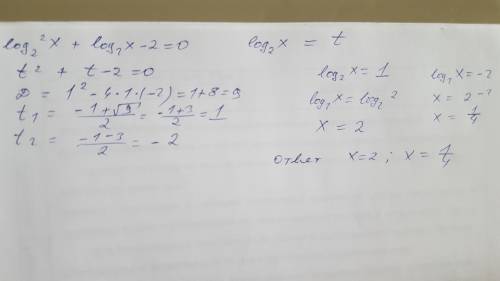 log₂²x + log₂x - 2 = 0
t² + t - 2 = 0
D = 1² - 4·1·(-2) = 1 + 8 = 9
t₁ = (-1 + √9)/2 = (-1 + 3)/2 = 1
t₂ = (-1 - 3)/2 = -2
log₂x = t
log₂x = 1
log₂x = log₂2
x = 2
log₂x = -2
x = 2⁻²
x = 1/4
ответ x = 2 ; x = 1/4